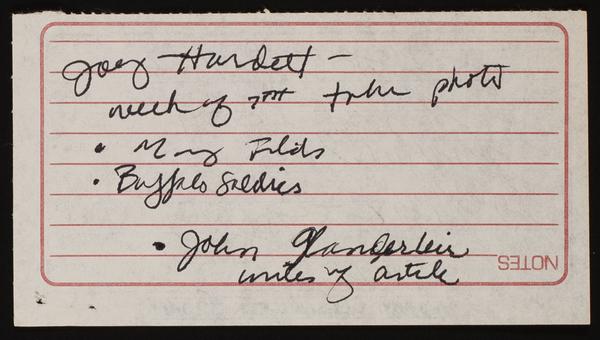 Joey Hardett –
week of 7TH take photo
• Mary Fields
• Buffalo Soldiers
• John
writes of article
NOTES